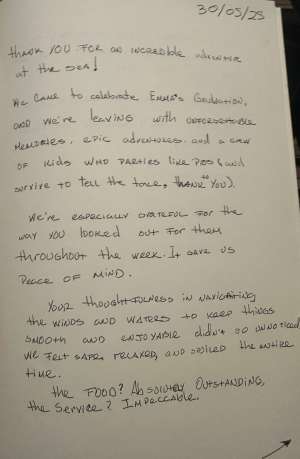 30/05/25
Thank you for an incredible adventure
at the sea!
We came to celebrate Emma's Graduation,
and we're leaving with unforgettable
memories, epic adventures, and a crew
of kids who parties like pros (and
survive to tell the tale, thank to you).
We're especially grateful for the
way you looked out for them
throughout the week. It gave us
peace of mind.
Your thoughtfulness in navigating
the winds and waters to keep things
smooth and enjoyable didn't go unnoticed
we felt safe, relaxed, and spoiled the entire
time.
the food? Absolutely Outstanding,
the service? Impeccable.